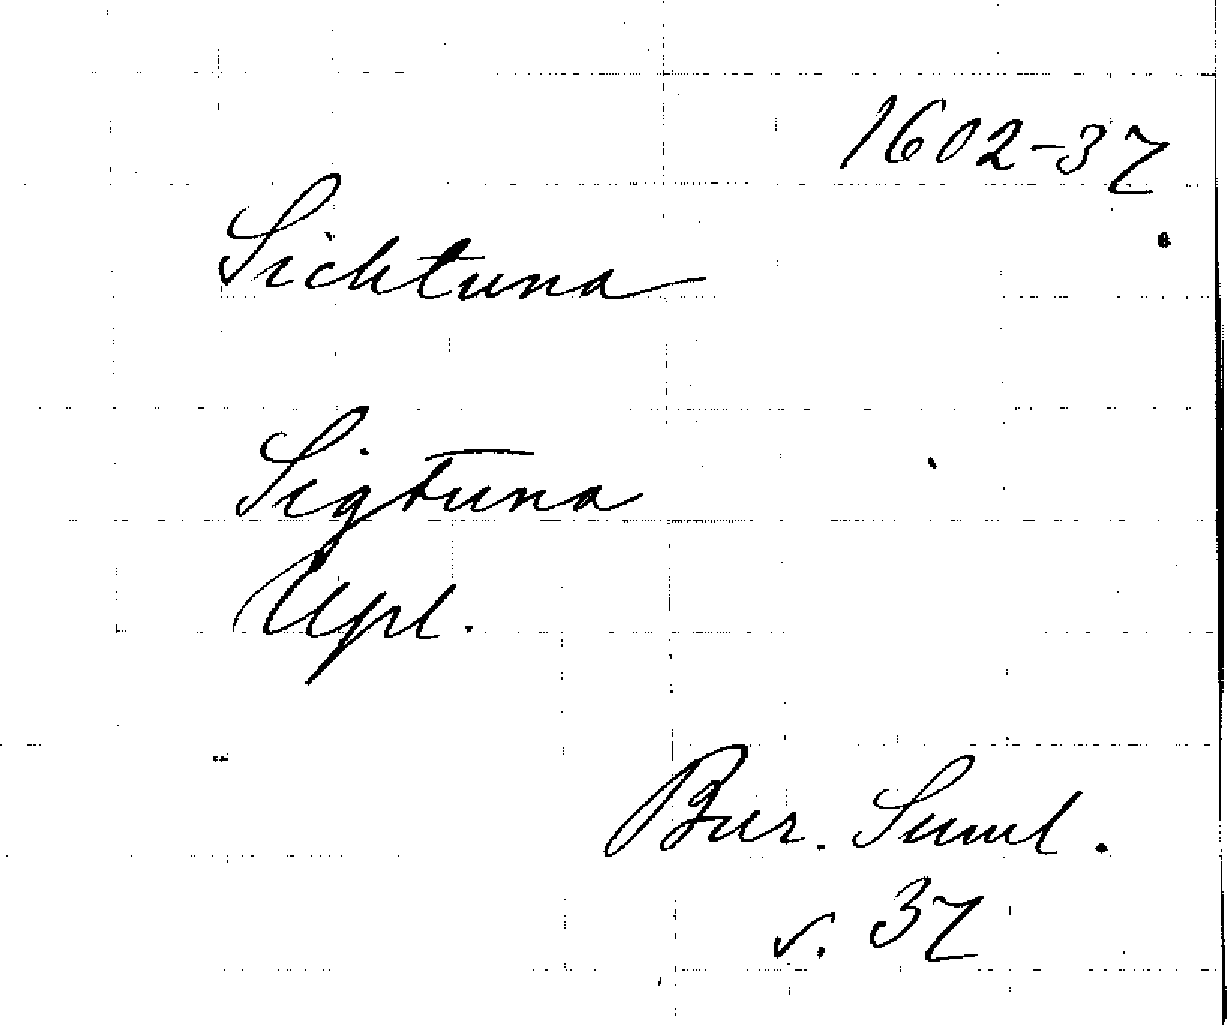 1602-37
Sichtuna
Sigtuna
Upl.
Bur. Suml.
s. 37